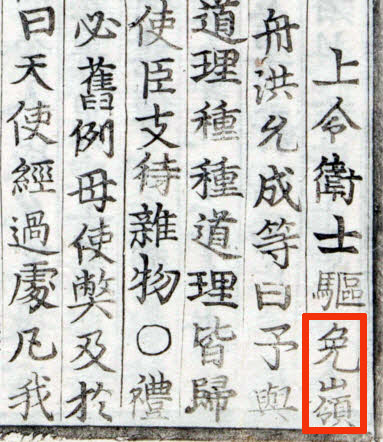 上令衛士驅兔嶺
舟洪允成等曰予與
道理種種道理皆歸
使臣支待雜物○禮
必舊例毋使獘及於
曰天使經過處凡我